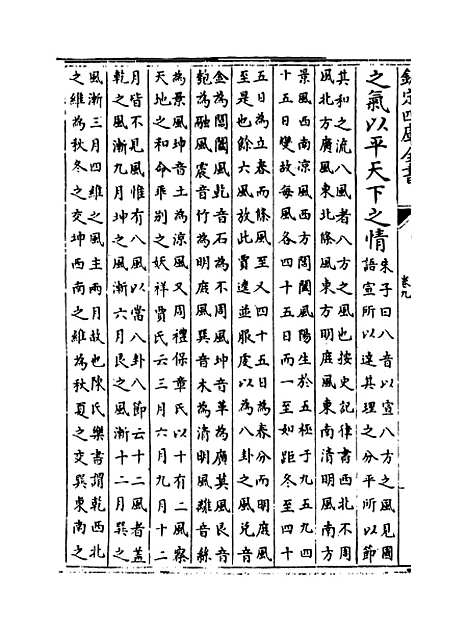 欽定四庫全書
卷九
之氣以平天下之情朱子曰八音以宣八方之風見國
語宣所以達其理之分平所以節
其和之流八風者八方之風也按史記律書西北不周
風北方廣風東北條風東方明庶風東南清明風南方
景風西南涼風西方閶闔風陽生於五極于九五九四
十五日變故每風各四十五日而一至如距冬至四十
五日為立春而條風至又四十五日為春分而明庶風
至是也餘六風放此賈逵並服虔以為八卦之風兌音
金為閶闔風乾音石為不周風坎音革為廣莫風艮音
匏為融風震音竹為明庶風巽音木為清明風離音絲
為景風坤音土為涼風又周禮保章氏以十有二風察
天地之和命乖别之妖祥賈氏云三月六月九月十二
月皆不見風惟有八風以當八卦八節云十二風者蓋
乾之風漸九月坤之風漸六月艮之風漸十二月巽之
風漸三月四維之風主兩月故也陳氏樂書謂乾西北
之維為秋冬之交坤西南之維為秋夏之交巽東南之